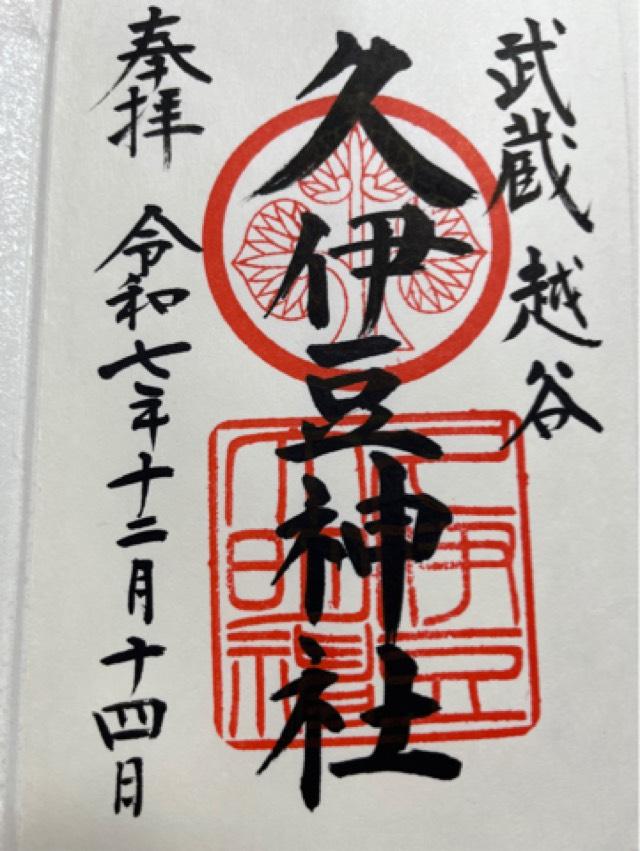 武蔵越谷
久伊豆神社
奉拝 令和七年十二月十四日
久伊豆
大明神